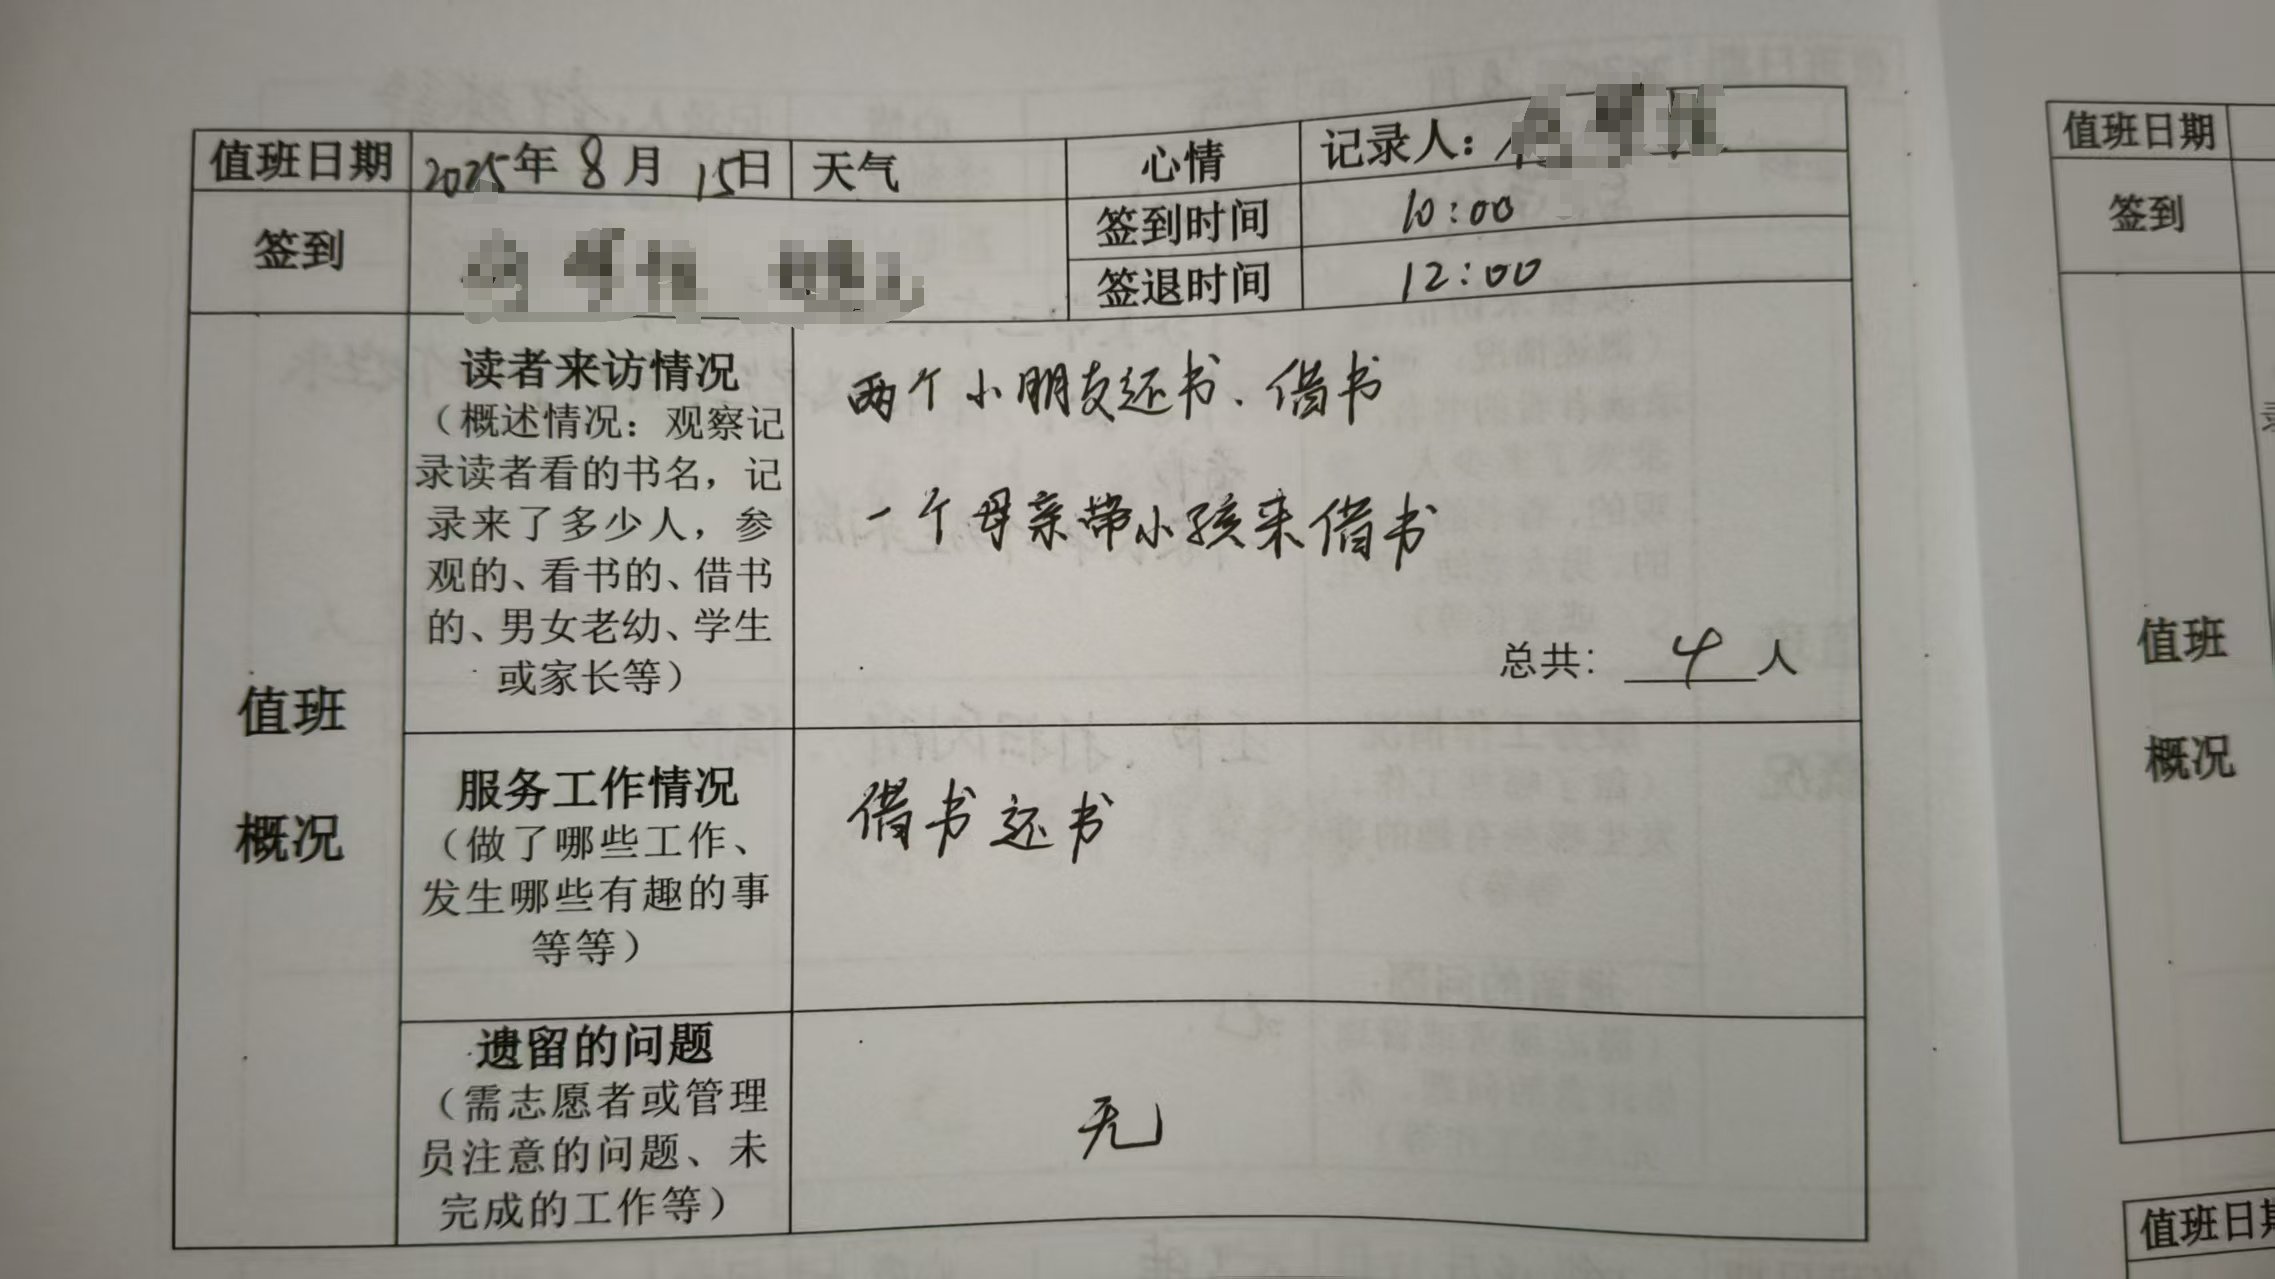 值班日期 2025年 8月 15日 天气 心情 记录人：
签到 签到时间 10:00
签退时间 12:00
值班
概况
读者来访情况
（概述情况：观察记
录读者看的书名，记
录来了多少人，参
观的、看书的、借书
的、男女老幼、学生
或家长等）
两个小朋友还书、借书
一个母亲带小孩来借书
总共： 4 人
服务工作情况
（做了哪些工作、
发生哪些有趣的事
等等）
借书还书
遗留的问题
（需志愿者或管理
员注意的问题、未
完成的工作等）
无
值班日期
签到
值班
概况
值班日期